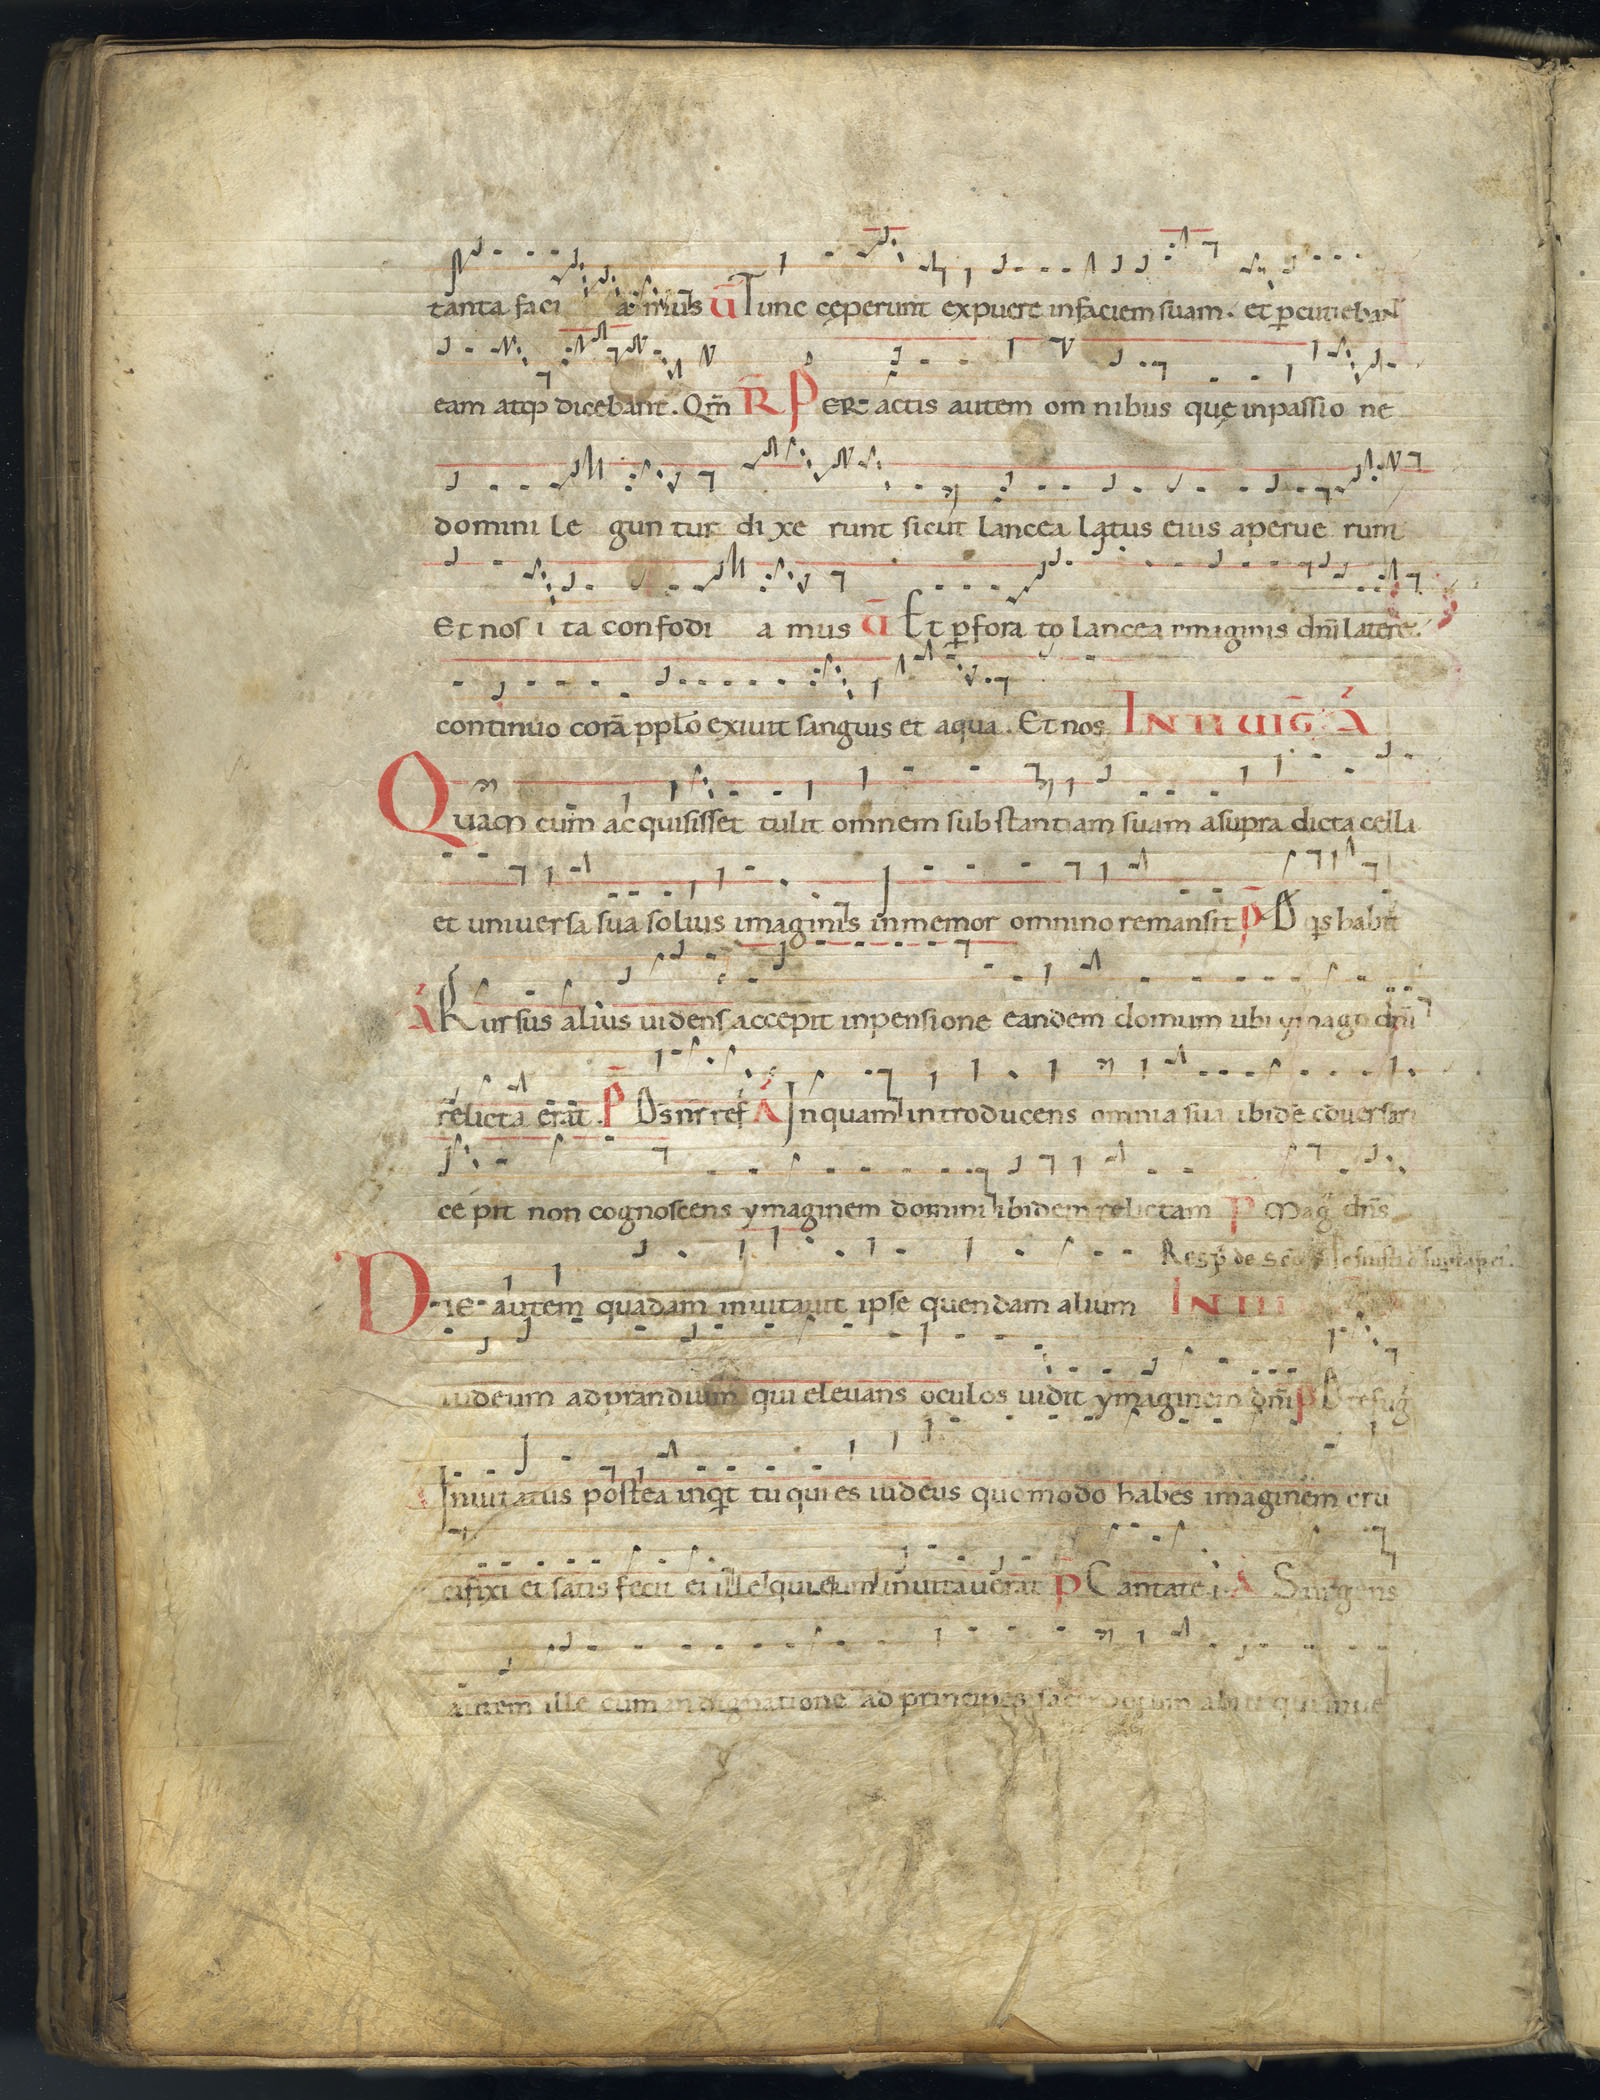 tanta faci a mus V̄ Tunc cęperunt expuere in faciem suam. et ꝑcutieban
eam atqꝫ dicebant. Qm̄ R̄ PER actis autem om nibus quę in passio ne
domini le gun tur di xe runt sicut lancea latus eius aperue runt
Et nos i ta confodi a mus V̄ Et ꝑfora to lancea imaginis dn̄i latere.
continuo corā pplo exiuit sanguis et aqua. Et nos IN II UIG̃ A
Quaqꝫ cum acquisisset tulit omnem substantiam suam a supra dicta cella
et uniuersa sua solius imaginis inmemor omnino remansit P D q̄s habit̄
A Rursus alius uidens accepit in pensione eandem domum ubi ymago dn̄i
relicta erat. P D̄s nr̄ ref A In quam introducens omnia sua ibidē cōuersari
cepit non cognoscens ymaginem domini ibidem relictam P Mag̃ dn̄s
DIE autem quadam inuitauit ipse quendam alium IN III
iudeum ad prandium qui eleuans oculos uidit ymaginem dn̄i P D refug̃
A Inuitatus postea inq̄t tu qui es iudeus quomodo habes imaginem cru
cifixi et satis fecit ei ille qui eum inuitauerat P Cantate .i. A Surgens
autem ille cum indignatione ad principes sacerdotum abiit